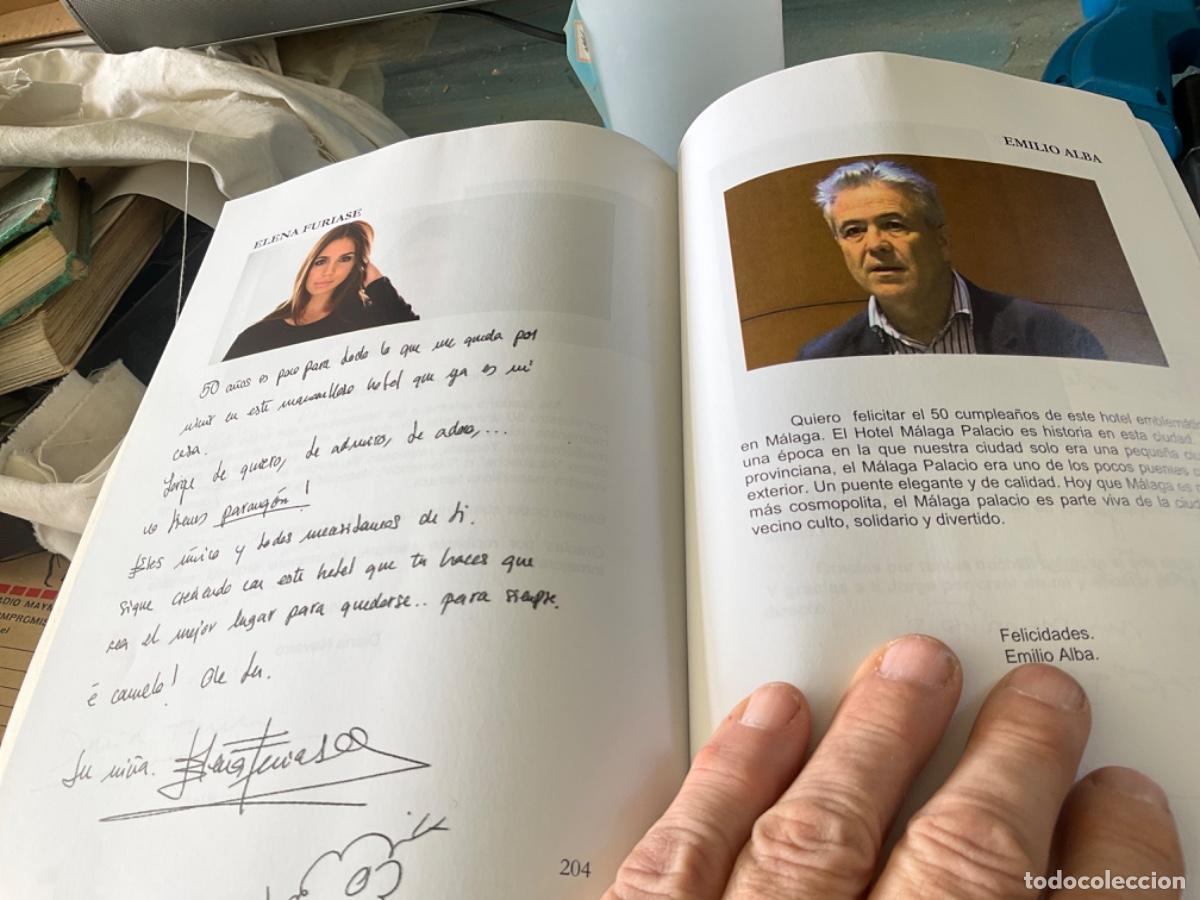 ELENA FURIASE
50 años es poco para todo lo que me queda por
vivir en este maravilloso hotel que ya es mi
casa.
Jorge te quiero, te admiro, te adoro,...
no tienes parangón!
Eres único y todos necesitamos de ti.
Sigue creando con este hotel que tu haces que
sea el mejor lugar para quedarse.. para siempre.
é camelo! Ole tu.
Tu niña. Elena Furiase
204
EMILIO ALBA
Quiero felicitar el 50 cumpleaños de este hotel
en Málaga. El Hotel Málaga Palacio es historia en esta ciudad.
una época en la que nuestra ciudad solo era una pequeña
provinciana, el Málaga Palacio era uno de los pocos puentes
exterior. Un puente elegante y de calidad. Hoy que Málaga es
más cosmopolita, el Málaga palacio es parte viva de la
vecino culto, solidario y divertido.
Felicidades.
Emilio Alba.
todocoleccion